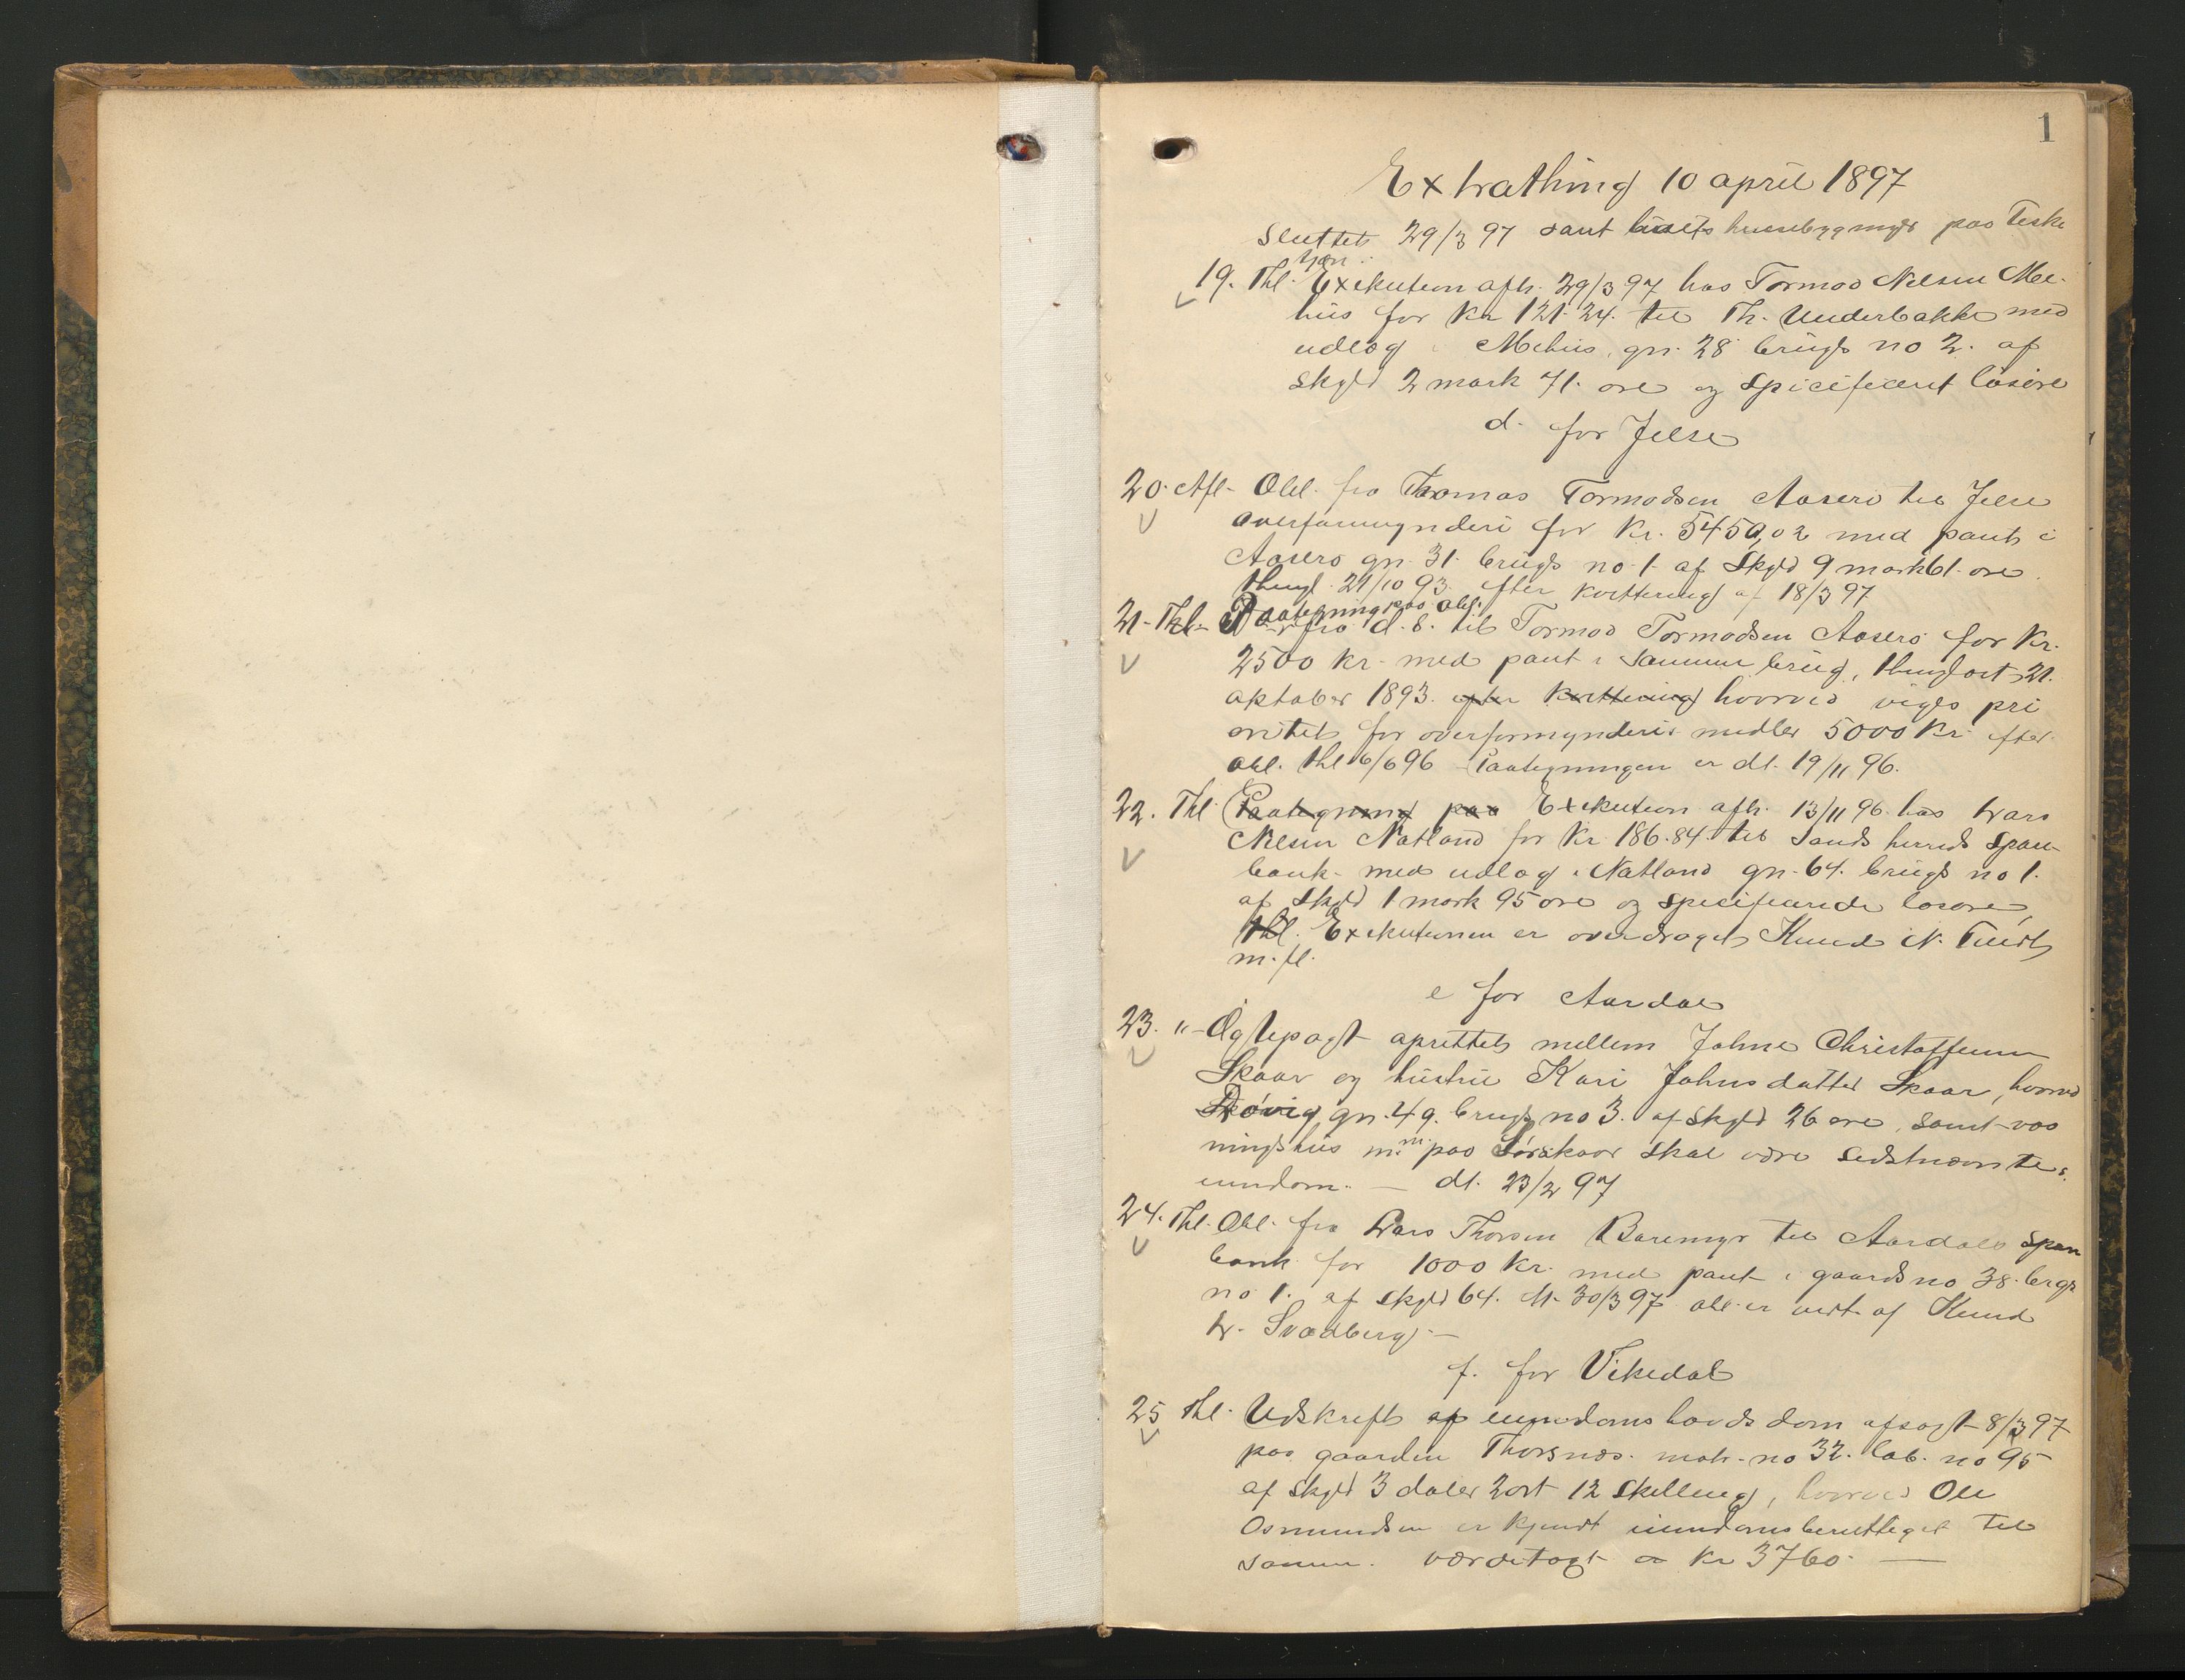 1
Extrathing 10 april 1897
sluttet 29/3 97 samt husebygninger paa Teske
tjøn.
19. Thl. Exekution afh. 29/3 97 hos Tormod Nelsen Me-
hus for Kr 121.24. til Th. Underbakke med
udlæg i Mehus, gn. 28 brugs no 2. af
skyld 2 mark 71. øre og specificeret løsøre
d. for Jelse
20. Afl. Obl. fra Thomas Tormodsen Aasero til Jelse
overformynderi for Kr. 5450,02 med pant i
Aasero gn. 31. brugs no 1. af Skyld 9 mark 61. øre.
thingl. 21/10 93. efter kvittering af 18/3 97
21. Thl. Paategning paa obl. fra d. s. til Tormod Tormodsen Aasero for Kr.
2500 kr. med pant i samme brug, thinglæst 21.
oktober 1893. efter kvittering hvorved viges pri
oritet for overformynderiets midler 5000 Kr. efter
obl. thl 6/6 96 Paategningen er dt. 19/11 96.
22. Thl. Paategning paa Exekution afh. 13/11 96. hos Lars
Nelsen Natland for Kr 186.84 til Sands herreds Spare
bank. med udlæg i Natland gn. 64. brugs no 1.
af Skyld 1 mark 95 øre og specificerede løsøre,
Thl. Exekutionen er overdraget Knud N. Tveidt
m. fl.
e for Aardal
23. " Ægtepagt oprettet mellem Johne Christoffersen
Skaar og hustru Kari Johnsdatter Skaar, hvorved
Døvig gn. 49. brugs no 3. af Skyld 26 øre, samt vaa
ningshus m. m. paa Sørskaar skal være sidstnævntes
eiendom. — dt. 23/2 97
24. Thl. Obl. fra Lars Thorsen Baremyr til Aardals Spare
bank for 1000 Kr. med pant i gaards no 38. brgs
no 1. af skyld 64. dt. 30/3 97 obl. er vedt. af Knud
L. Svadberg. —
f. for Vikedal
25 Thl. Udskrift af eiendoms hævds dom afsagt 8/3 97
paa gaarden Thorsnæs. matr. no 32. løb. no 95
af skyld 3 daler 2 ort 12 Skilling, hvorved Ole
Osmundsen er kjendt eiendomsberettiget til
samme. værditaxt er Kr 3760. —